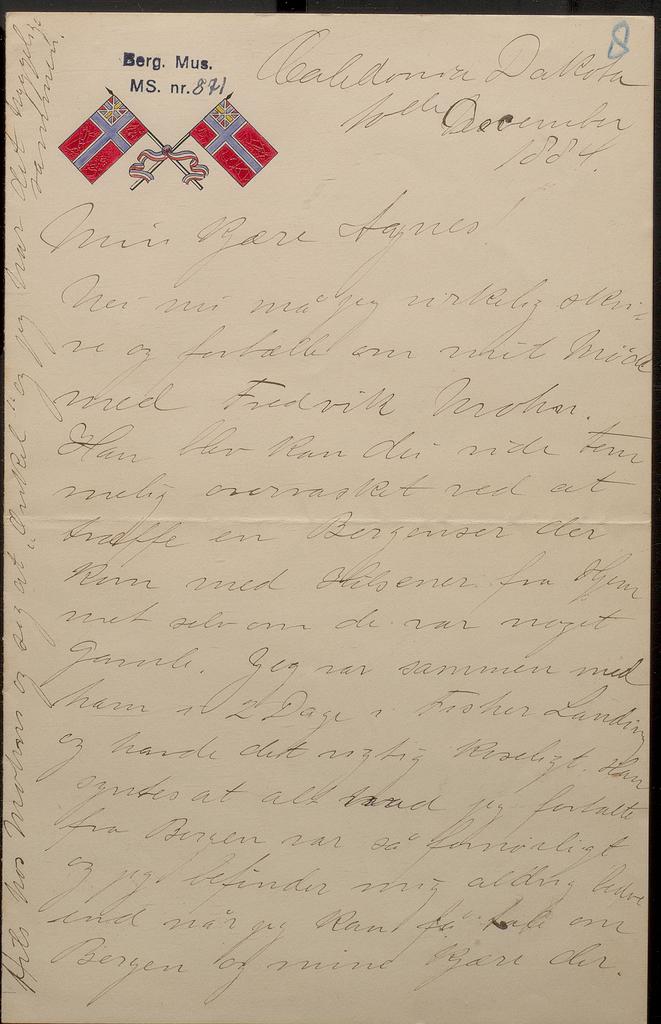 8
Berg. Mus.
MS. nr. 871
Caledonia Dakota
10de December
1884.
Min kjære Agnes!
Nei nu må jeg virkelig skri-
ve og fortælle om mit Möde
med Fredrik Mohn.
Han blev kan du vide tem
melig overrasket ved at
træffe en Bergenser der
kom med Hilsener fra Hjem
met selv om de var noget
gamle. Jeg var sammen med
ham i 2 Dage i Fisher Landing
og havde det rigtig koseligt. Han
syntes at alt hvad jeg fortalte
fra Bergen var så fornöieligt
og jeg befinder mig aldrig bedre
end når jeg kan få tale om
Bergen og mine kjære der.
Hils hos Mohns og sig at "Onkel" og jeg har det hyggelig
sammen.